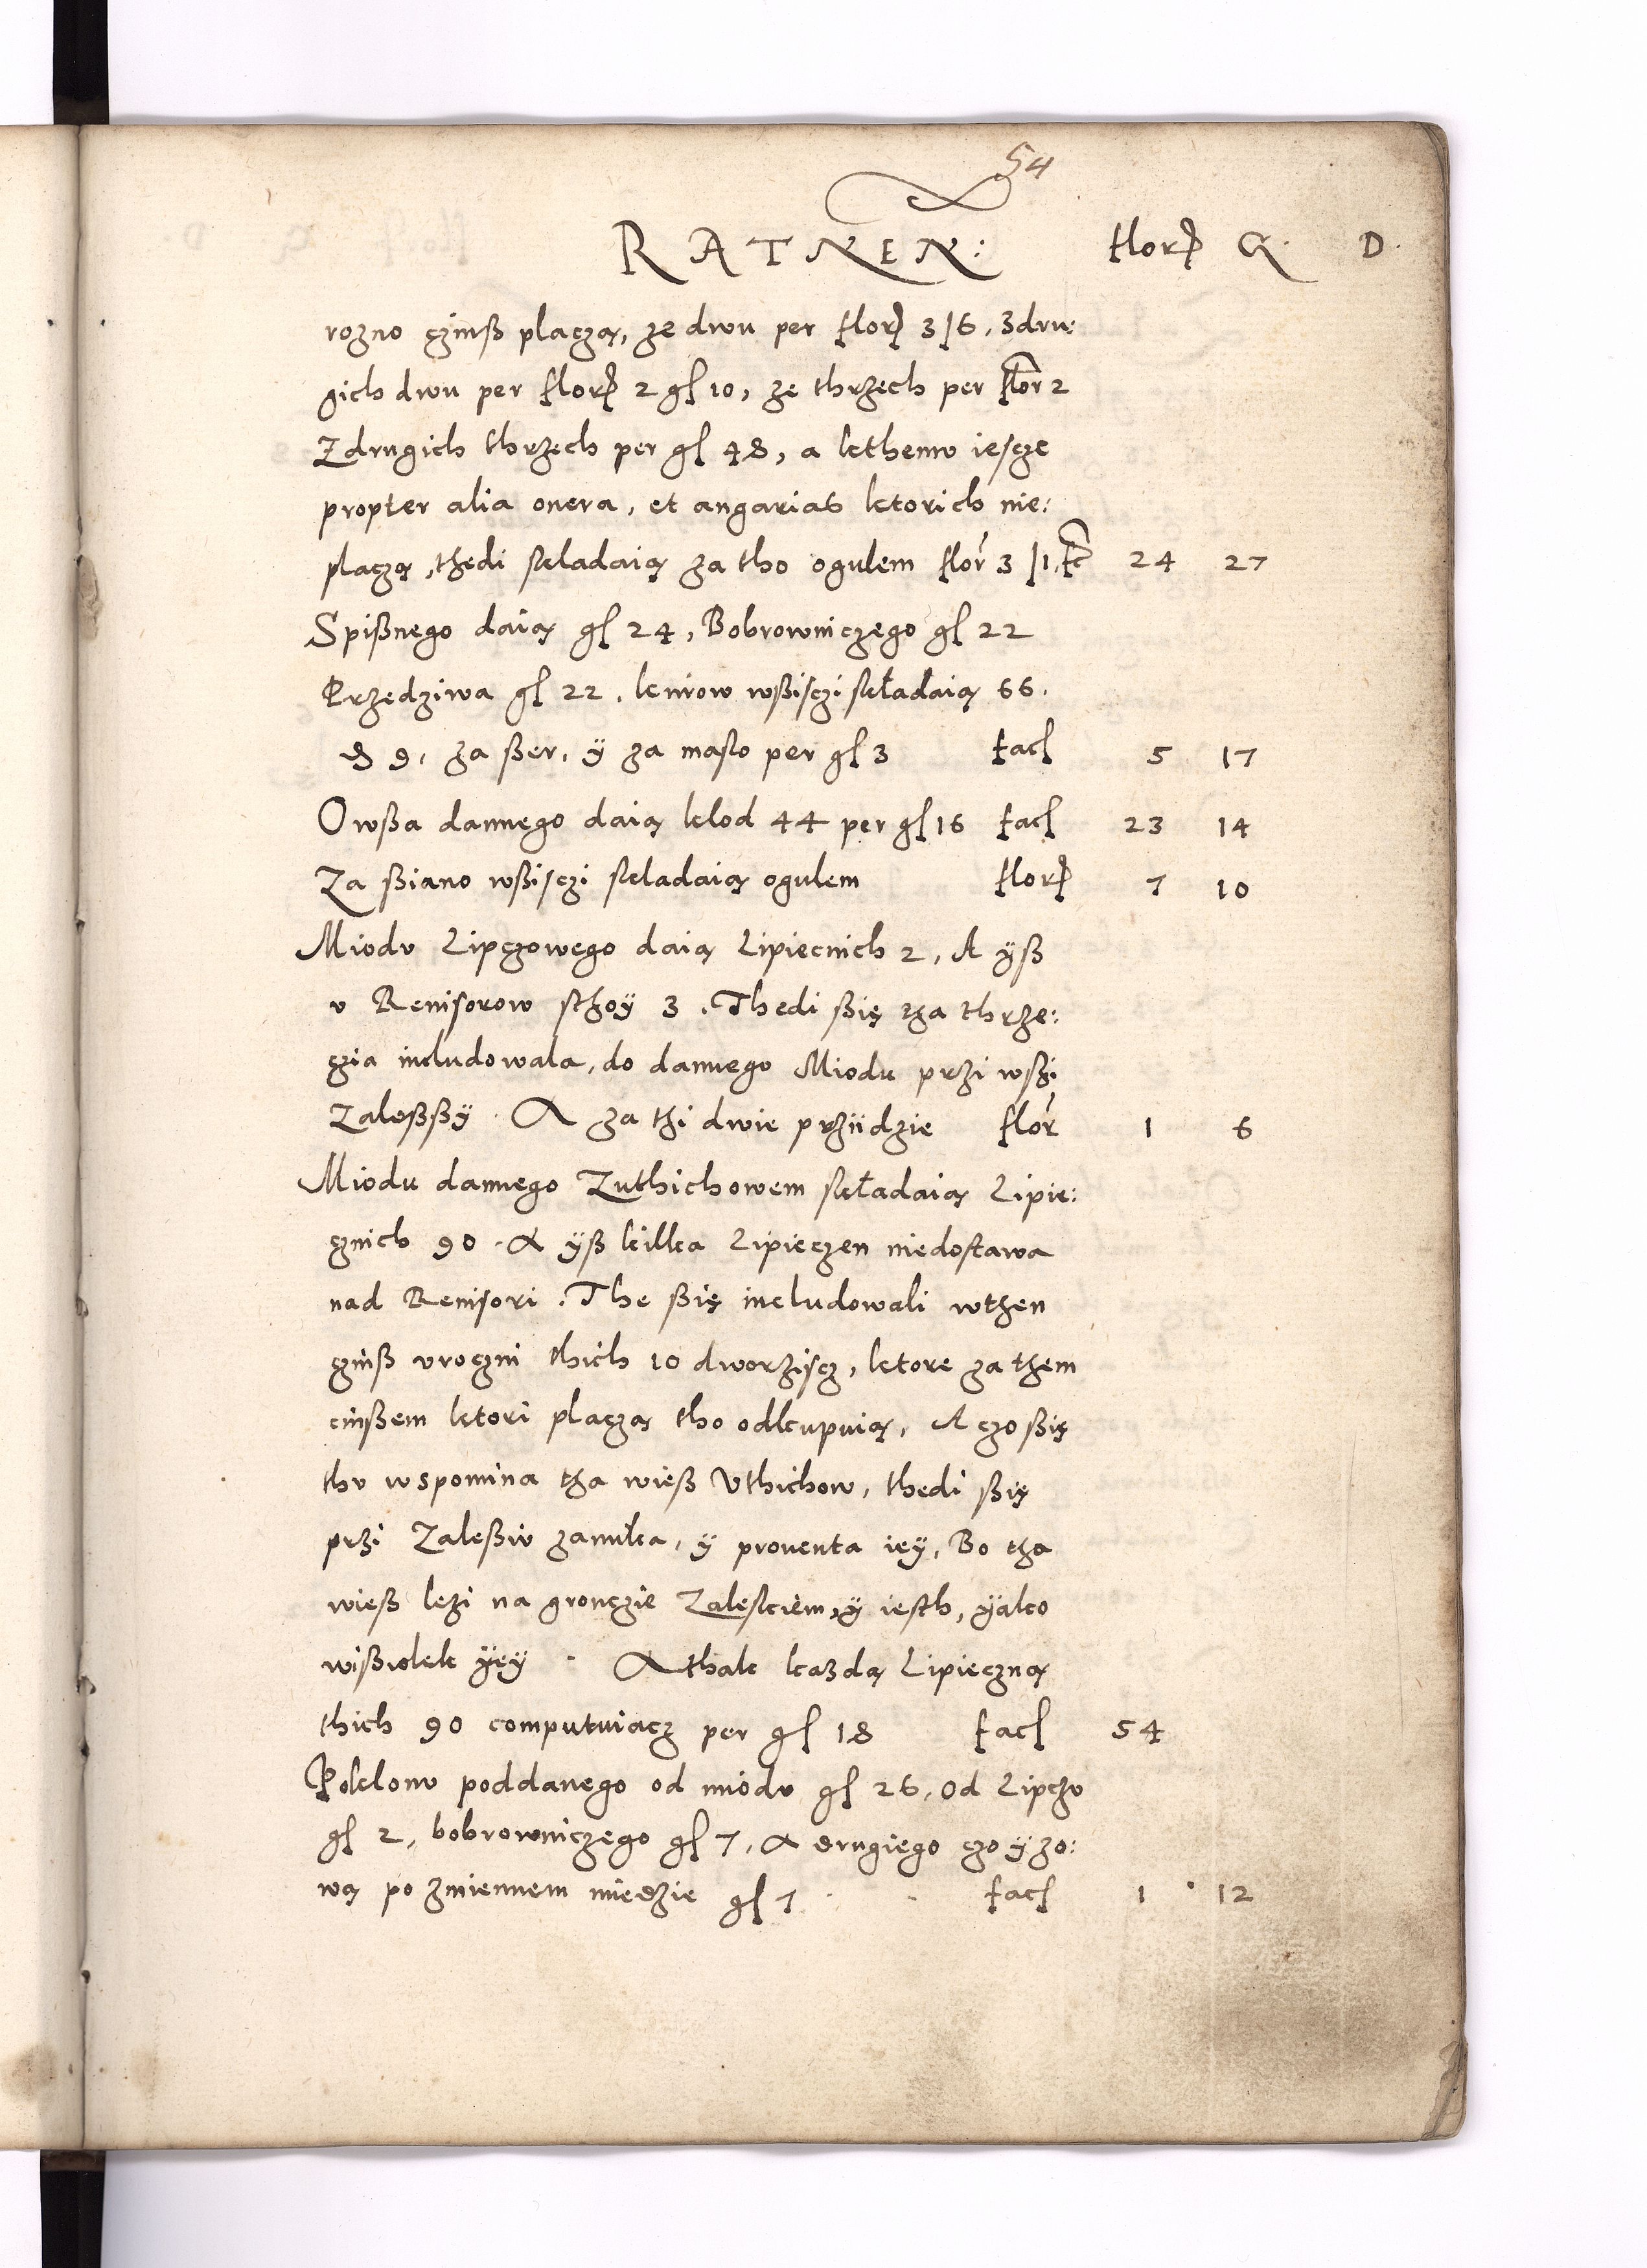 54
RATNEN: flor G. D.
rozno czinß placzą, ze dwu per flor 3/6, z dru:
gich dwu per flor 2 gl 10, ze thrzech per flor 2
Zdrugich thrzech per gl 48, a kthemv iescze
propter alia onera, et angarias ktorich nie:
placzą, thedi składaią za tho ogulem flor 3/1. fc 24 27
Spißnego daią gl 24, Bobrowniczego gl 22
Przędziwa gl 22, kuiow wßisczi składaią 66.
d 9, za ßer, ÿ za masło per gl 3 facl 5 17
Owßa dannego daią klod 44 per gl 16 facl 23 14
Za ßiano wßisczi składaią ogulem flor 7 10
Miodv Lipczowego daią Lipiecnich 2, A ÿß
v Reuisorow sthoÿ 3. Thedi ßię tha thrze:
czia includowala, do dannego Miodu przi wßi
Zaleßßÿ. A za thi dwie prziidzie flor 1 6
Miodu dannego Zuthichowem składaią Lipie:
cznich 90. A ÿß kilka Lipieczen niedostawa
nad Reuisori. The ßię includowali wthen
czinß vroczni thich 10 dworziscz, ktore za them
cinßem ktori placzą tho odkupuią, A czo ßię
thv wspomina tha wieß Vthichow, thedi ßię
przi Zaleßiv zamika, ÿ prouenta ieÿ, Bo tha
wieß lezi na gronczie Zaleskiem, ÿ iesth, ÿako
wißiolek ÿeÿ. A thak kazdą Lipieczną
thich 90 computuiacz per gl 18 facl 54
Poklonv poddanego od miodv gl 26, Od Lipczv
gl 2, bobrowniczego gl 7, A drugiego czo ÿ zo:
wą po zmiennem miedzie gl 7 facl 1 12